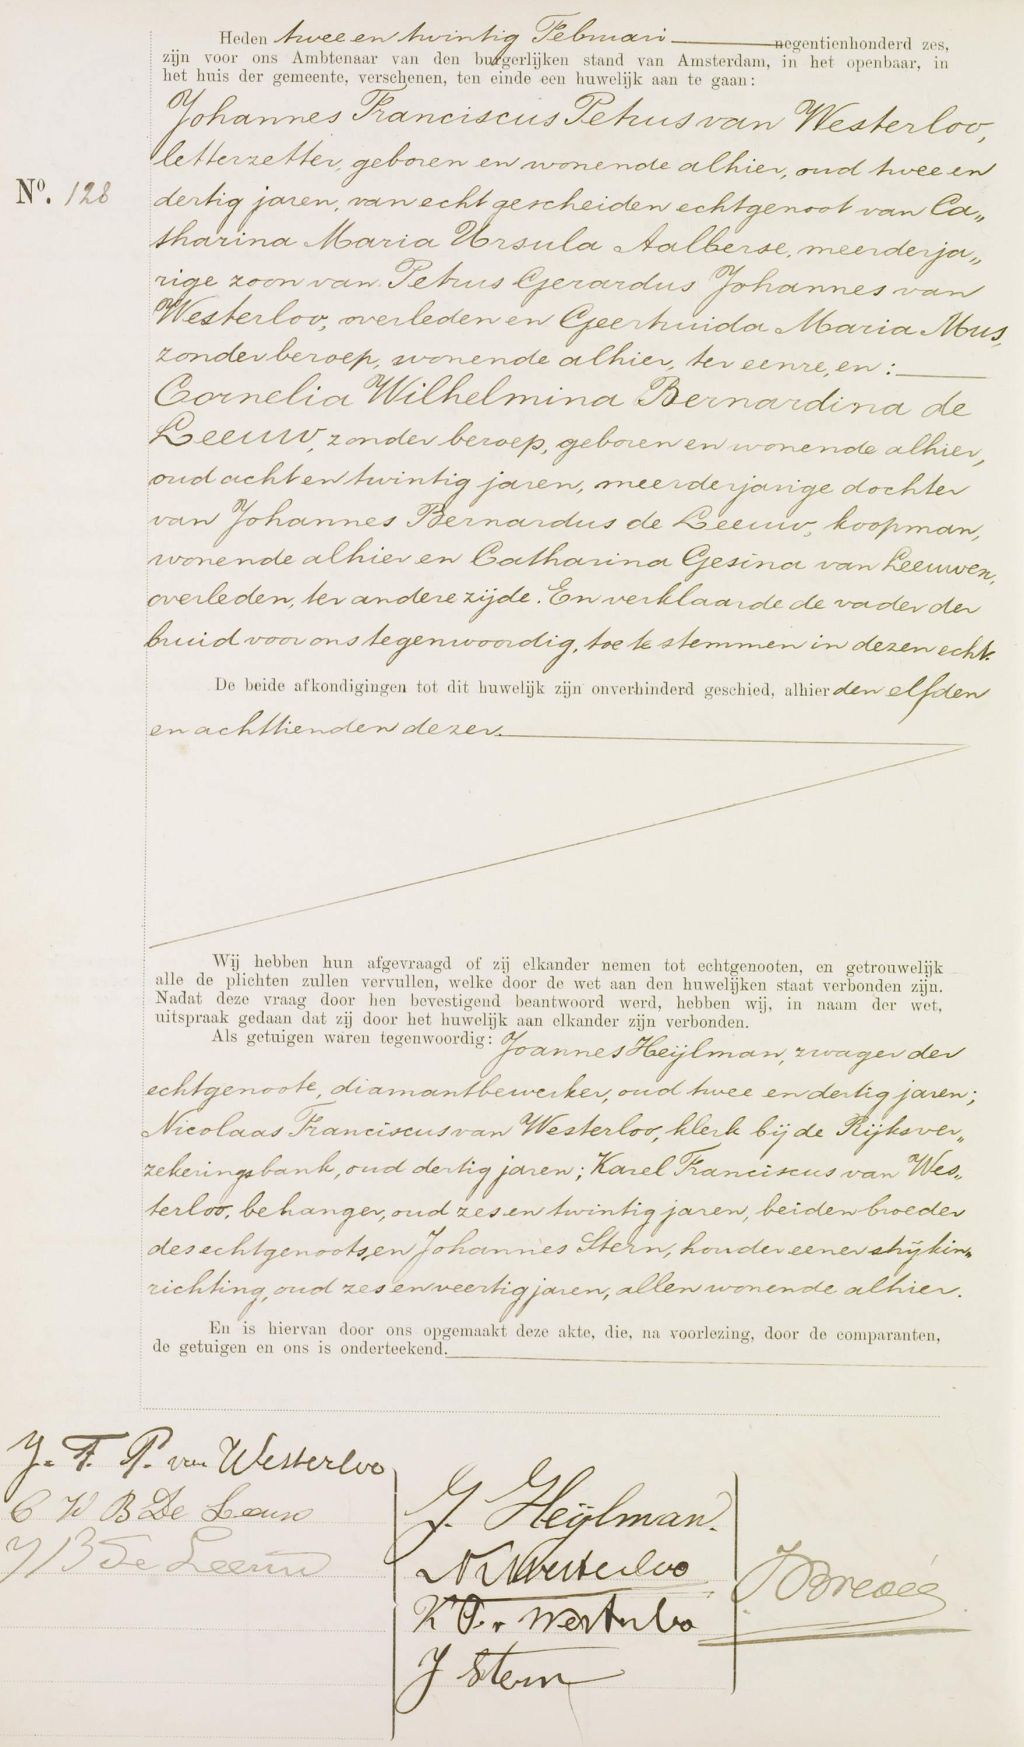 Heden twee en twintig Februari negentienhonderd zes,
zijn voor ons Ambtenaar van den burgerlijken stand van Amsterdam, in het openbaar, in
het huis der gemeente, verschenen, ten einde een huwelijk aan te gaan:
Johannes Franciscus Petrus van Westerloo,
letterzetter, geboren en wonende alhier, oud twee en
No. 128
dertig jaren, van echt gescheiden echtgenoot van Ca„
tharina Maria Ursula Aalberse, meerderja„
rige zoon van Petrus Gerardus Johannes van
Westerloo, overleden en Geertruida Maria Mus,
zonder beroep, wonende alhier, ter eenre, en:
Cornelia Wilhelmina Bernardina de
Leeuw, zonder beroep, geboren en wonende alhier,
oud acht en twintig jaren, meerderjarige dochter
van Johannes Bernardus de Leeuw, koopman,
wonende alhier en Catharina Gesina van Leeuwen,
overleden, ter andere zijde. En verklaarde de vader der
bruid voor ons tegenwoordig, toe te stemmen in dezen echt.
De beide afkondigingen tot dit huwelijk zijn onverhinderd geschied, alhier den elfden
en achttienden dezer.
Wij hebben hun afgevraagd of zij elkander nemen tot echtgenooten, en getrouwelijk
alle de plichten zullen vervullen, welke door de wet aan den huwelijken staat verbonden zijn.
Nadat deze vraag door hen bevestigend beantwoord werd, hebben wij, in naam der wet,
uitspraak gedaan dat zij door het huwelijk aan elkander zijn verbonden.
Als getuigen waren tegenwoordig: Joannes Heijlman, zwager der
echtgenoote, diamantbewerker, oud twee en dertig jaren;
Nicolaas Franciscus van Westerloo, klerk bij de Rijksver„
zekeringsbank, oud dertig jaren; Karel Franciscus van Wes„
terloo, behanger, oud zes en twintig jaren, beiden broeder
des echtgenoots, en Johannes Stern, houder eener strijkin„
richting, oud zes en veertig jaren, allen wonende alhier.
En is hiervan door ons opgemaakt deze akte, die, na voorlezing, door de comparanten,
de getuigen en ons is onderteekend.
J. F. P. van Westerloo
C W B De Leeuw
J B De Leeuw
J. Heijlman.
Westerloo
K F. v Westerloo
J Stern